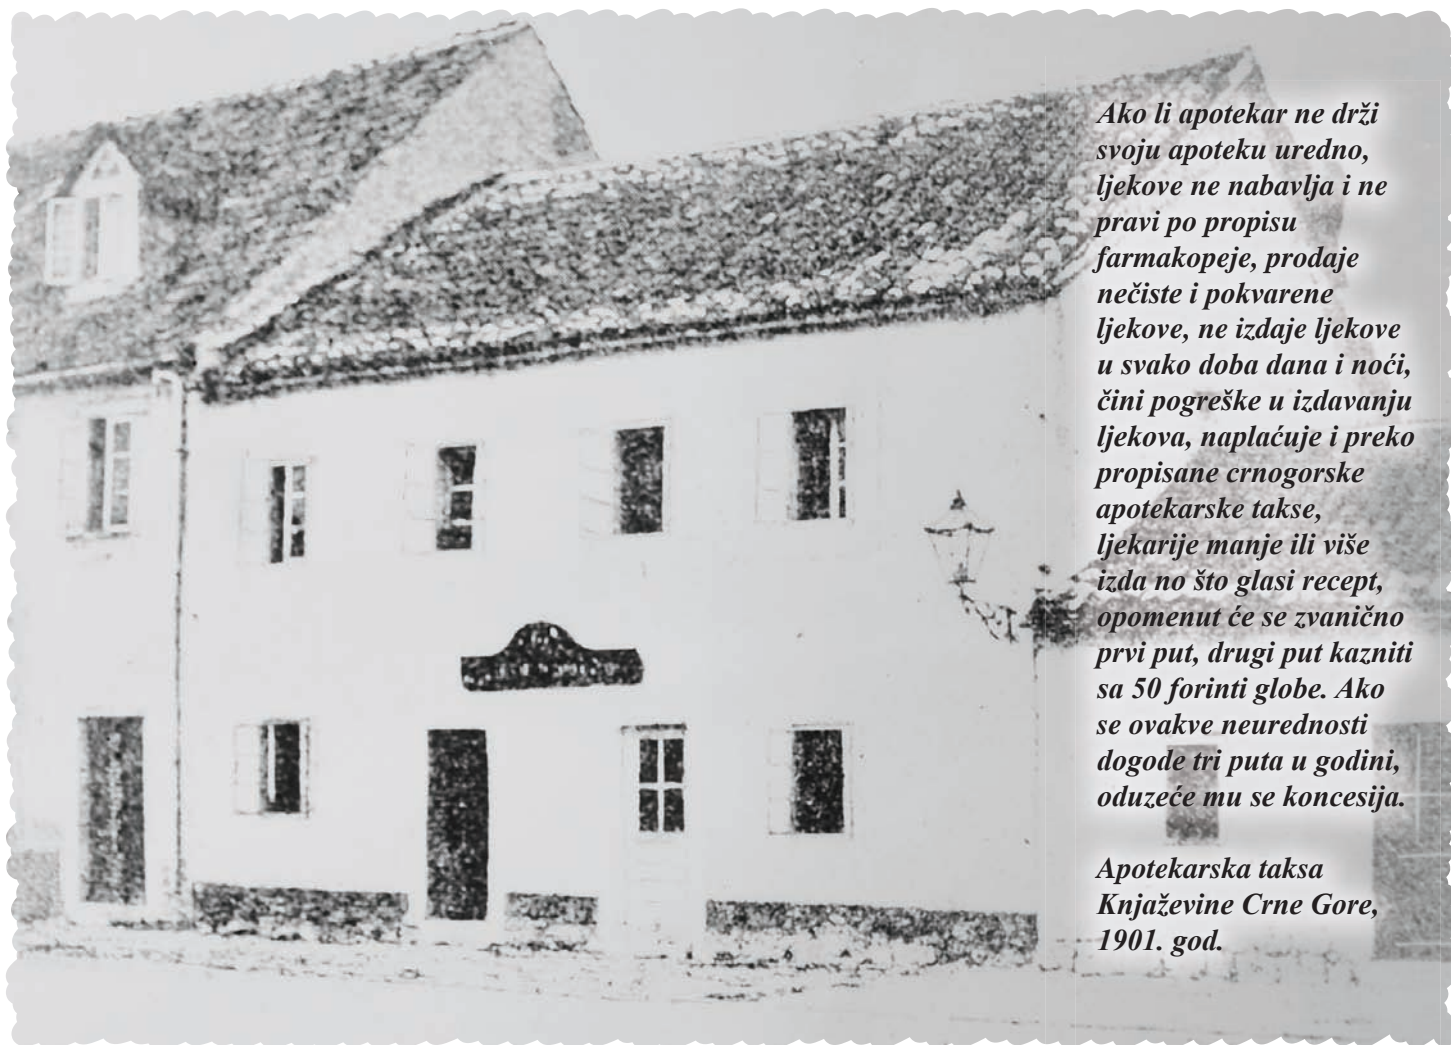 Ako li apotekar ne drži
svoju apoteku uredno,
ljekove ne nabavlja i ne
pravi po propisu
farmakopeje, prodaje
nečiste i pokvarene
ljekove, ne izdaje ljekove
u svako doba dana i noći,
čini pogreške u izdavanju
ljekova, naplaćuje i preko
propisane crnogorske
apotekarske takse,
ljekarije manje ili više
izda no što glasi recept,
opomenut će se zvanično
prvi put, drugi put kazniti
sa 50 forinti globe. Ako
se ovakve neurednosti
dogode tri puta u godini,
oduzeće mu se koncesija.
Apotekarska taksa
Knjaževine Crne Gore,
1901. god.